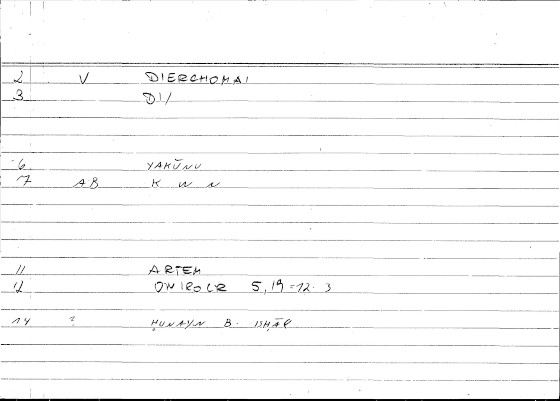 2 V DIERCHOMAI
3 DI/
6 YAKŪNU
7 AB K W N
11 ARTEM
12 ONIROCR 5,19-12.3
14 ? ḤUNAYN B. ISḤĀQ